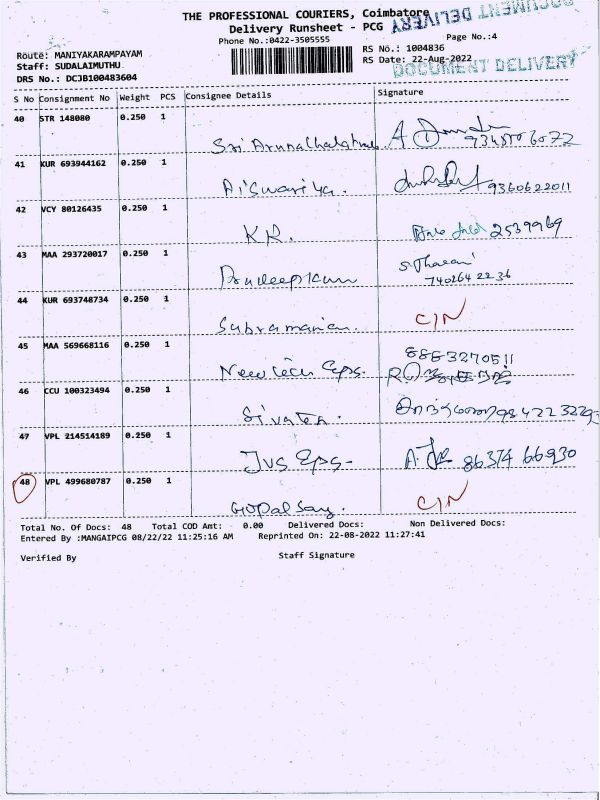 THE PROFESSIONAL COURIERS, Coimbatore
DOCUMENT DELIVERY
Delivery Runsheet - PCG
Phone No.:0422-3505555
Page No.:4
Route: MANIYAKARAMPAYAM
RS No.: 1004836
Staff: SUDALAIMUTHU
RS Date: 22-Aug-2022
DOCUMENT DELIVERY
DRS No.: DCJB100483604
S No Consignment No Weight PCS Consignee Details Signature
40 STR 148080 0.250 1
Sri A
9345506072
41 KUR 693944162 0.250 1
Aiswariya. 9360622011
42 VCY 80126435 0.250 1
KR. 2539969
43 MAA 293720017 0.250 1
Pradeepkum S. Tharani
740264 22 36
44 KUR 693748734 0.250 1
Subramanian. C/N
45 MAA 569668116 0.250 1
8883270511
Newtech Eps.
46 CCU 100323494 0.250 1
47 VPL 214514189 0.250 1
JVS Eps- 86374 66930
48 VPL 499680787 0.250 1
Gopalsay. C/N
Total No. Of Docs: 48 Total COD Amt: 0.00 Delivered Docs: Non Delivered Docs:
Entered By :MANGAIPCG 08/22/22 11:25:16 AM Reprinted On: 22-08-2022 11:27:41
Verified By Staff Signature